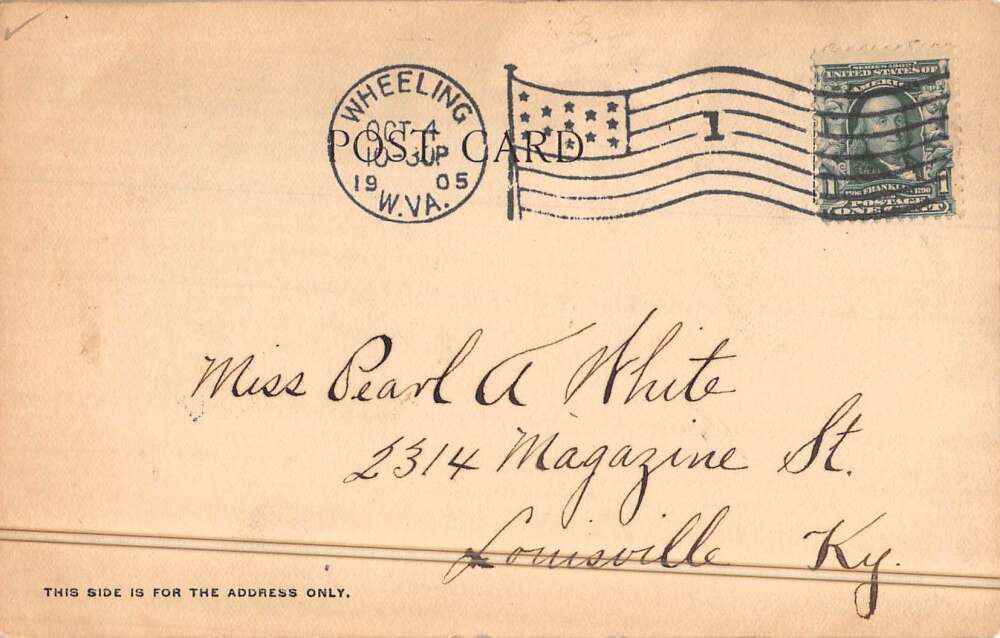 WHEELING
OCT 4
10 30P
1905
W.VA.
POST CARD
1
SERIES 1902
UNITED STATES OF
AMERICA
1706 FRANKLIN 1790
1 POSTAGE 1
ONE CENT
Miss Pearl A White
2314 Magazine St.
Louisville Ky.
THIS SIDE IS FOR THE ADDRESS ONLY.